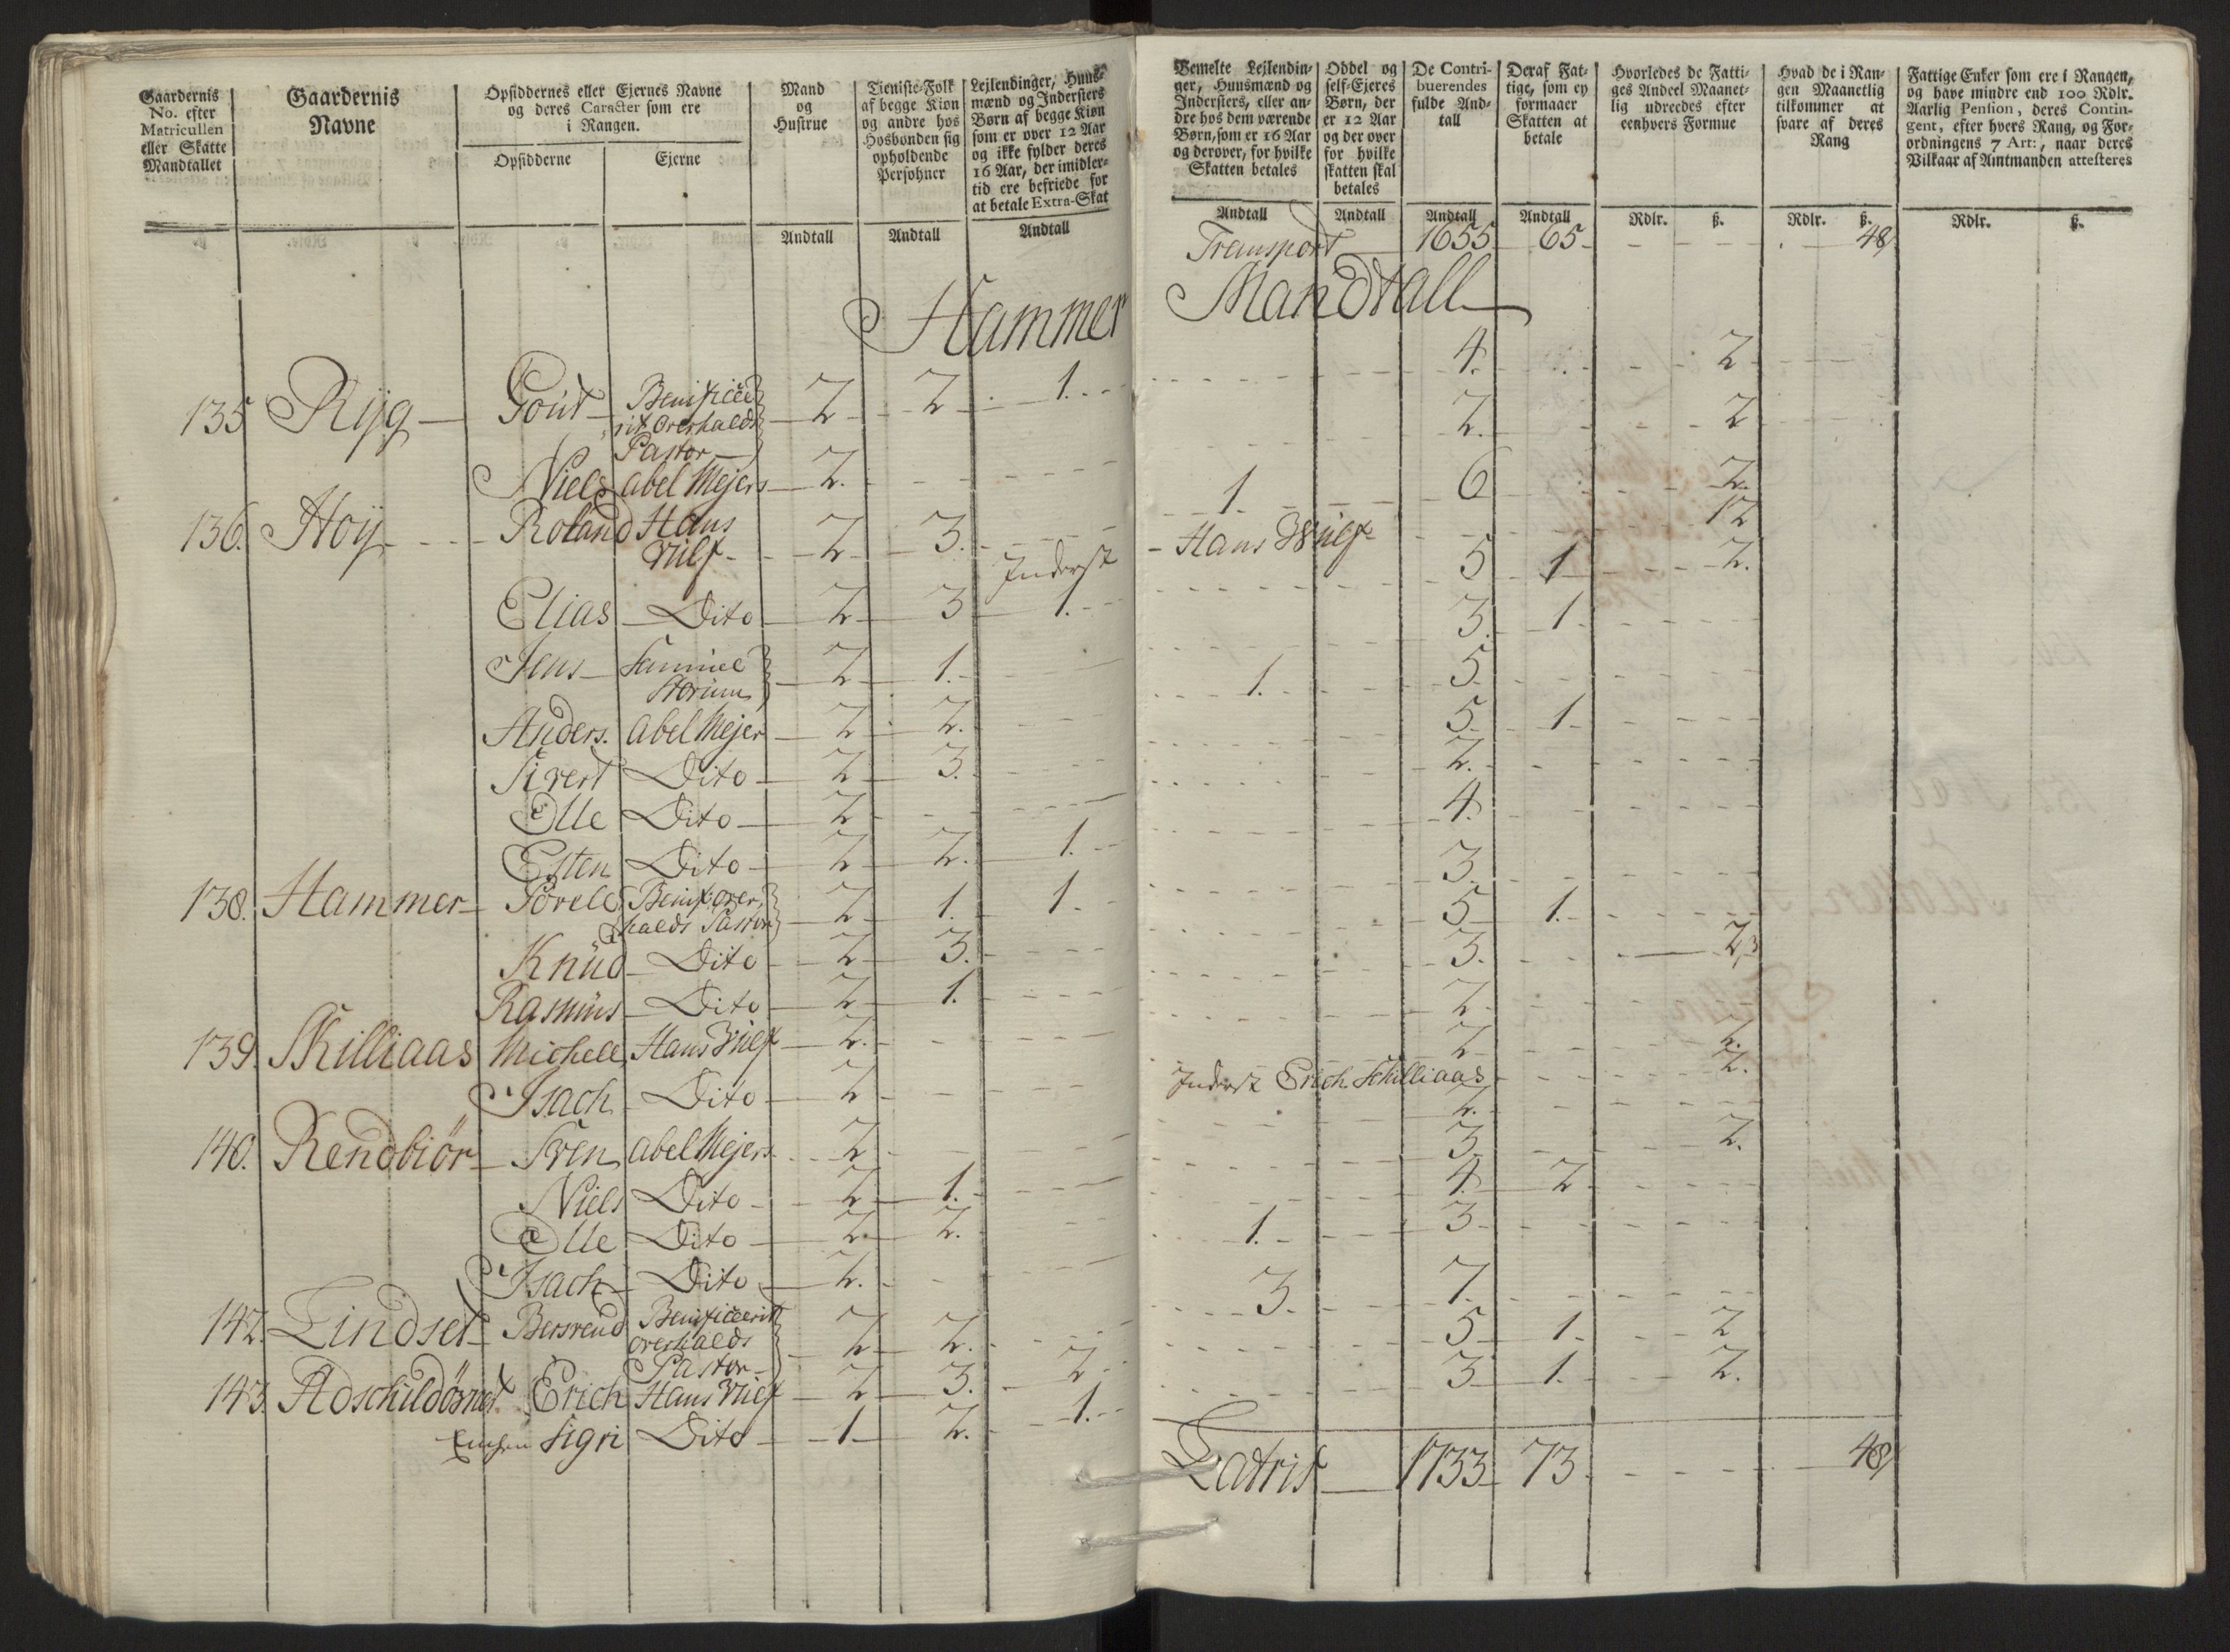 Gaardernis
No. efter
Matricullen
eller Skatte
Mandtallet
Gaardernis
Navne
Opsiddernes eller Ejernes Navne
og deres Caracter som ere
i Rangen.
Opsidderne
Ejerne
Mand
og
Hustrue
Tieniste-Folk
af begge Kiøn
og andre hos
Hosbonden sig
opholdende
Persohner
Lejlendinger, Huus-
mænd og Indersters
Børn af begge Kiøn
som er over 12 Aar
og ikke fylder deres
16 Aar, der imidler-
tid ere befriede for
at betale Extra-Skat
Andtall Andtall Andtall
Hammer
135 Rijg Goud Benificee
rit Overhalds
Pastor 2 2 1.
Niels Abel Mejers 2.
136. Hoy Roland Hans
Wulf 2 3.
Inderst
Elias Dito 2 3 1.
Jens Samuel
Storium 2 1.
Anders. Abel Mejer 2 2.
Sivert Dito 2 3.
Olle Dito 2
Esten Dito 2 2. 1.
138. Hammer Povele Benif: over
halds Pastor 2 1. 1
Knüd Dito 2 3.
Rasmus Dito 2 1.
139. Skilliaas Michell Hans Wulf 2.
Isach Dito 2
140. Rendbiör Sven Abel Mejers 2
Niels Dito 2 1.
Olle Dito 2. 2.
Isach Dito 2.
142. Lindset Bersvend Benificeerit
overhalds
Pastor 2 2.
143. Adschildörnet Erich Hans Wulf 2 3. 2
Enchen Sigri Dito 1 2. 1.
Bemelte Lejlendin-
ger, Huusmænd og
Indersters, eller an-
dre hos dem værende
Børn, som er 16 Aar
og derover, for hvilke
Skatten betales
Oddel og
self-Ejeres
Børn, der
er 12 Aar
og der over
for hvilke
skatten skal
betales
De Contri-
buerendes
fulde And-
tall
Deraf Fat-
tige, som ey
formaaer
Skatten at
betale
Hvorledes de Fatti-
ges Andeel Maanet-
lig udredes efter
eenhvers Formue
Hvad de i Ran-
gen Maanetlig
tilkommer at
svare af deres
Rang
Fattige Enker som ere i Rangen,
og have mindre end 100 Rdlr.
Aarlig Pension, deres Contin-
gent, efter hvers Rang, og For-
ordningens 7 Art:, naar deres
Vilkaar af Amtmanden attesteres
Andtall Andtall Andtall Andtall Rdlr. ß. Rdlr. ß. Rdlr. ß.
Transport 1655 65 48
Mandtall
4. 2
2. 2
1. 6 2.
12
Hans Wulf 5 1 2.
3. 1.
1. 5.
5. 1
2.
4.
3.
5 1.
3. 2
2
2 2.
Inderst Erich Schilliaas 2.
2.
3. 2.
4. 2
1. 3
3. 7.
5 1. 2
3 1. 2.
Latris 1733 73 48